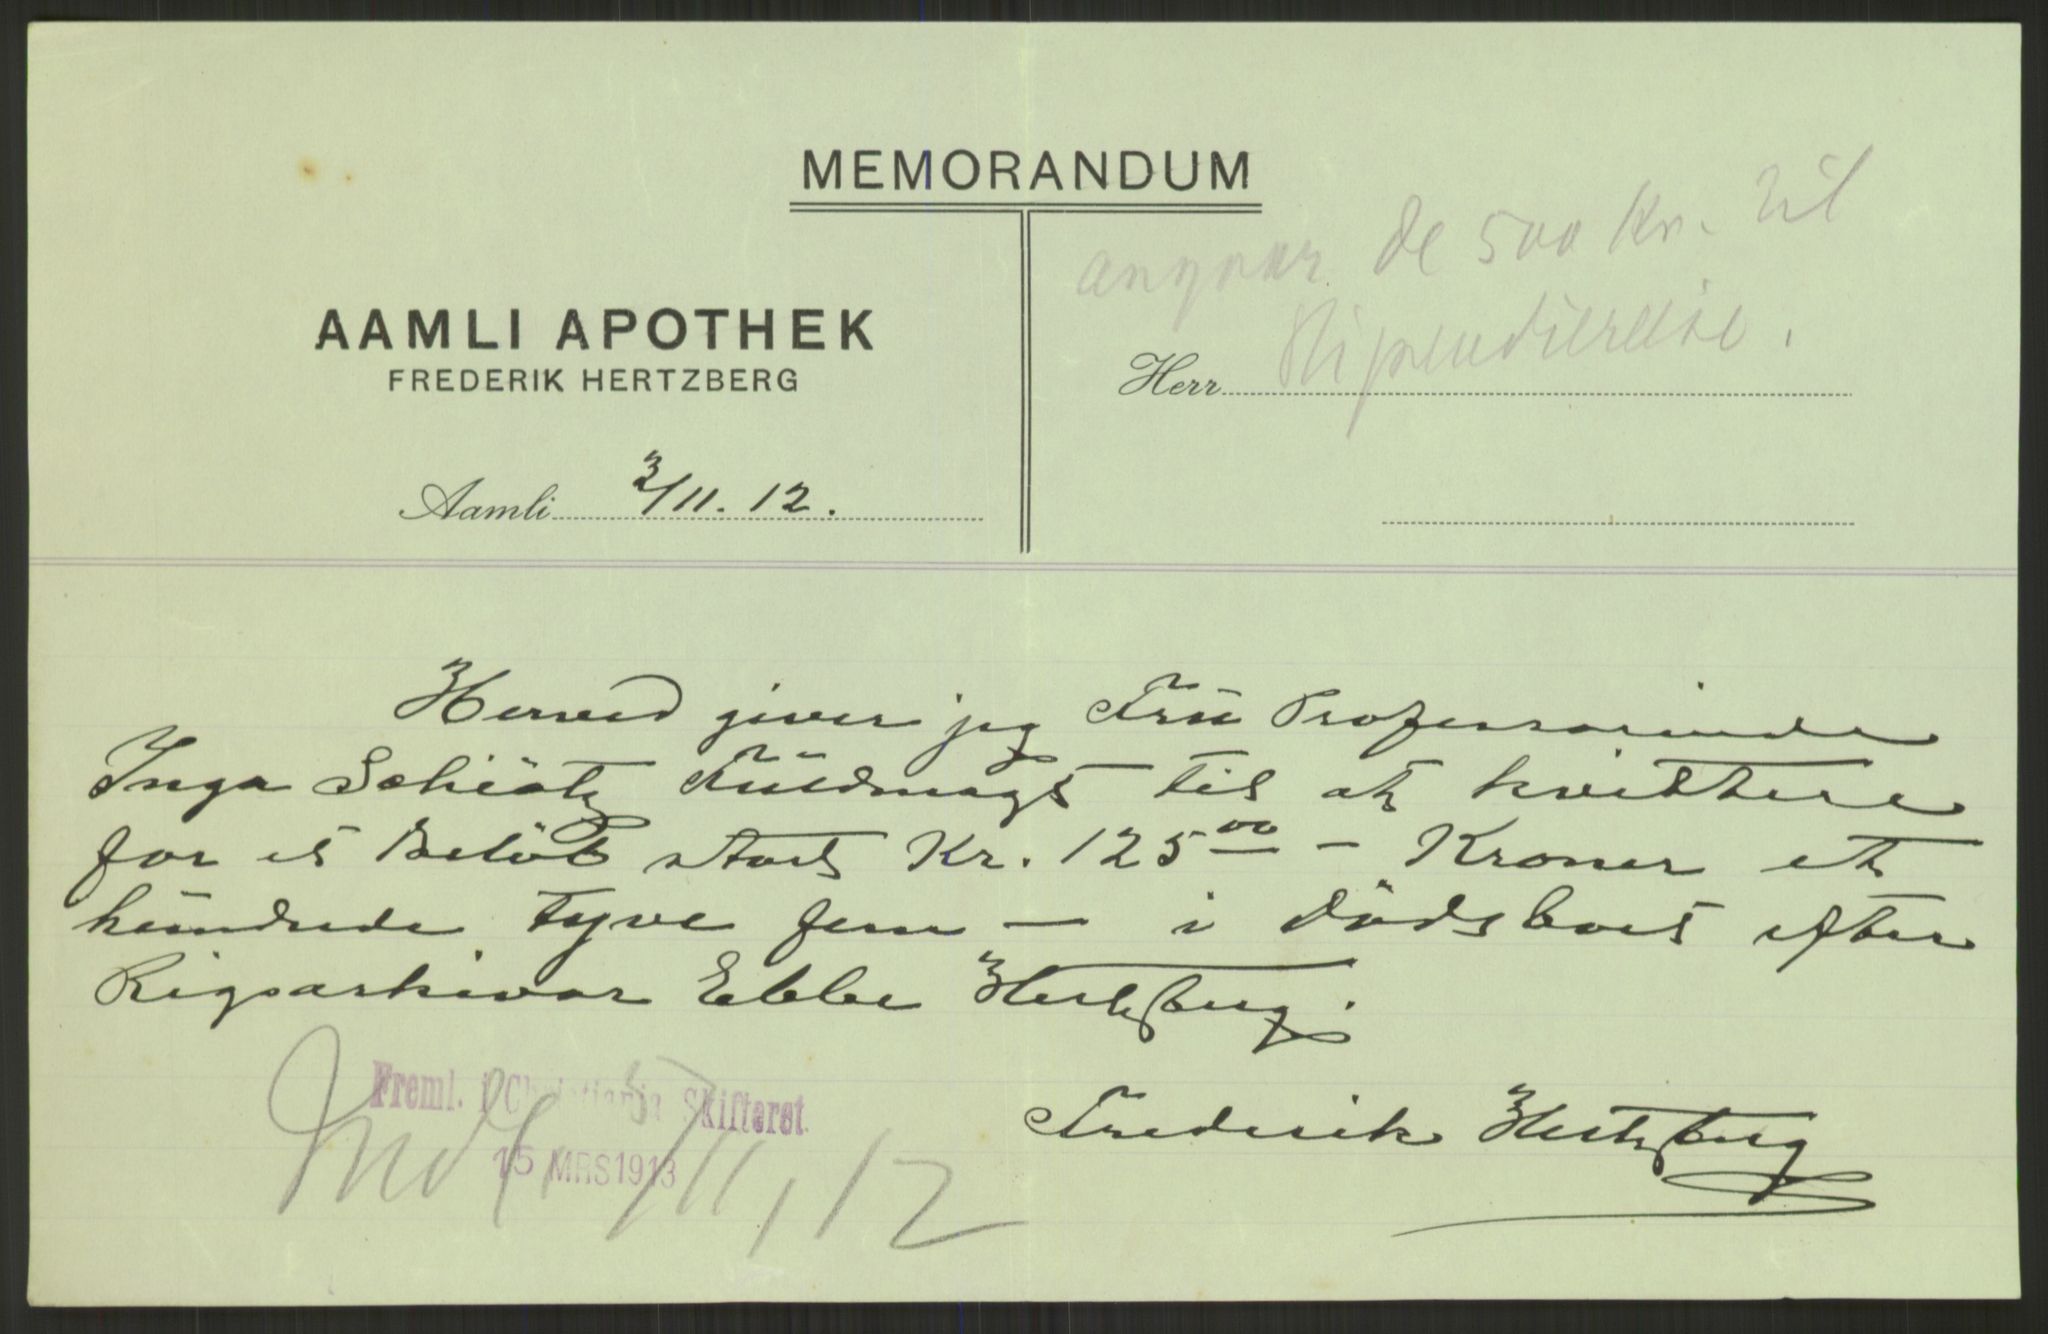 MEMORANDUM
angaar de 500 Kr. til
Stipendiereise.
AAMLI APOTHEK
FREDERIK HERTZBERG
Herr
Aamli 3/11. 12.
Herved giver jeg Fru Professorinde
Inga Schiøtz Fuldmagt til at kvittere
for et Beløb stort Kr. 125 00 - Kroner et
hundrede tyve fem - i Dødsboet efter
Rigsarkivar Ebbe Hertzberg.
Freml. i Christiania Skifteret.
15 MRS 1913
Frederik Hertzberg
5/11, 12